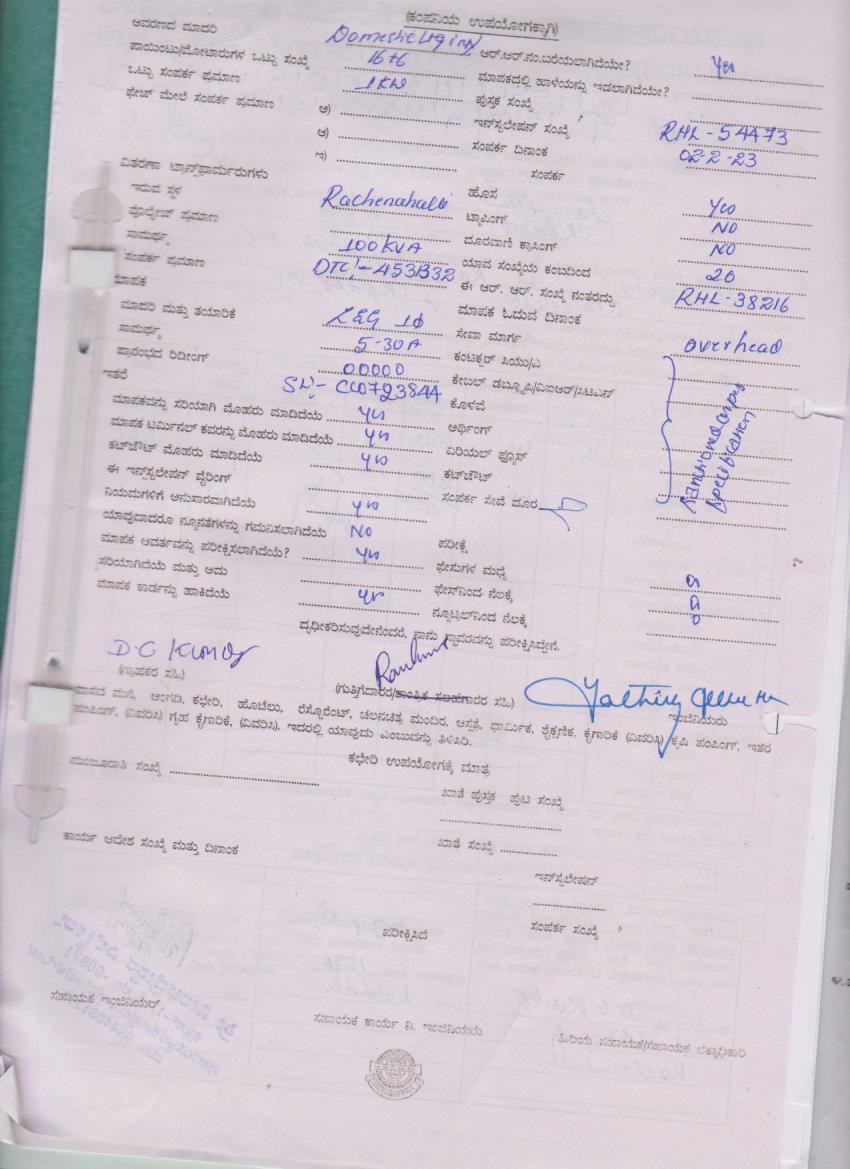 (ಕಂಪನಿಯ ಉಪಯೋಗಕ್ಕಾಗಿ)
ಆವರಣದ ಮಾದರಿ Domestic Lighing ಆರ್.ಆರ್.ನಂ.ಬರೆಯಲಾಗಿದೆಯೇ? Yes
ಪಾಯಿಂಟು/ಮೋಟಾರುಗಳ ಒಟ್ಟು ಸಂಖ್ಯೆ 16+6 ಮಾಪಕದಲ್ಲಿ ಹಾಳೆಯನ್ನು ಇಡಲಾಗಿದೆಯೇ?
ಒಟ್ಟು ಸಂಪರ್ಕ ಪ್ರಮಾಣ 1KW ಪುಸ್ತಕ ಸಂಖ್ಯೆ
ಫೇಜ್ ಮೇಲೆ ಸಂಪರ್ಕ ಪ್ರಮಾಣ ಅ) ಇನ್‌ಸ್ಟಲೇಷನ್ ಸಂಖ್ಯೆ RHL-54473
ಆ) ಸಂಪರ್ಕ ದಿನಾಂಕ 02-2-23
ಇ) ಸಂಪರ್ಕ
ವಿತರಣಾ ಟ್ರಾನ್ಸ್‌ಫಾರ್ಮರುಗಳು ಹೊಸ Yes
ಇರುವ ಸ್ಥಳ Rachenahalli ಟ್ಯಾಪಿಂಗ್ NO
ವೋಲ್ಟೇಜ್ ಪ್ರಮಾಣ ದೂರವಾಣಿ ಕ್ರಾಸಿಂಗ್ NO
ಸಾಮರ್ಥ್ಯ 100KVA ಯಾವ ಸಂಖ್ಯೆಯ ಕಂಬದಿಂದ 20
ಸಂಪರ್ಕ ಪ್ರಮಾಣ DTC:-453B32 ಈ ಆರ್. ಆರ್. ಸಂಖ್ಯೆ ನಂತರದ್ದು RHL-38216
ಮಾಪಕ ಮಾಪಕ ಓದುವ ದಿನಾಂಕ
ಮಾದರಿ ಮತ್ತು ತಯಾರಿಕೆ L&G 1Φ ಸೇವಾ ಮಾರ್ಗ overhead
ಸಾಮರ್ಥ್ಯ 5-30A ಕಂಟಕ್ಟರ್ ಸಿಯು/ಎ
ಪ್ರಾರಂಭದ ರಿಡಿಂಗ್ 00000 ಕೇಬಲ್ ಡಬ್ಲ್ಯೂಪಿ/ಐಐಆರ್/ಸಿಟಿಎಸ್
ಇತರೆ ಕೊಳವೆ
ಮಾಪಕವನ್ನು ಸರಿಯಾಗಿ ಮೊಹರು ಮಾಡಿದೆಯೆ Yes ಆರ್ಥಿಂಗ್
ಮಾಪಕ ಟರ್ಮಿನಲ್ ಕವರನ್ನು ಮೊಹರು ಮಾಡಿದೆಯೆ Yes ಏರಿಯಲ್ ಫ್ಯೂಸ್
ಕಟ್‌ಔಟ್ ಮೊಹರು ಮಾಡಿದೆಯೆ Yes ಕಟ್‌ಔಟ್
ಈ ಇನ್‌ಸ್ಟಲೇಷನ್ ವೈರಿಂಗ್ ಸಂಪರ್ಕ ಸೇವೆ ದೂರ
ನಿಯಮಗಳಿಗೆ ಅನುಸಾರವಾಗಿದೆಯೆ Yes
ಯಾವುದಾದರೂ ನ್ಯೂನತೆಗಳನ್ನು ಗಮನಿಸಲಾಗಿದೆಯೆ NO ಪರೀಕ್ಷೆ
ಮಾಪಕ ಆವರ್ತವನ್ನು ಪರೀಕ್ಷಿಸಲಾಗಿದೆಯೆ? Yes ಫೇಸುಗಳ ಮಧ್ಯೆ
ಸರಿಯಾಗಿದೆಯೆ ಮತ್ತು ಅದು ಫೇಸ್‌ನಿಂದ ನೆಲಕ್ಕೆ
ಮಾಪಕ ಕಾರ್ಡನ್ನು ಹಾಕಿದೆಯೆ Yes ನ್ಯೂಟ್ರಲ್‌ನಿಂದ ನೆಲಕ್ಕೆ
ದೃಢೀಕರಿಸುವುದೇನೆಂದರೆ, ನಾನು ಸ್ಥಾವರವನ್ನು ಪರೀಕ್ಷಿಸಿದ್ದೇನೆ.
D.C Kumar
(ಗ್ರಾಹಕರ ಸಹಿ) ಇಂಜಿನಿಯರು
ವಾಸದ ಮನೆ, ಅಂಗಡಿ, ಕಛೇರಿ, ಹೋಟೆಲು, ರೆಸ್ಟೋರೆಂಟ್, ಚಲನಚಿತ್ರ ಮಂದಿರ, ಆಸ್ಪತ್ರೆ, ಧಾರ್ಮಿಕ, ಶೈಕ್ಷಣಿಕ, ಕೈಗಾರಿಕೆ (ವಿವರಿಸಿ) ಕೃಷಿ ಪಂಪಿಂಗ್, ಇತರ
ಪಂಪಿಂಗ್, (ವಿವರಿಸಿ) ಗೃಹ ಕೈಗಾರಿಕೆ, (ವಿವರಿಸಿ), ಇದರಲ್ಲಿ ಯಾವುದು ಎಂಬುದನ್ನು ತಿಳಿಸಿರಿ.
ಕಛೇರಿ ಉಪಯೋಗಕ್ಕೆ ಮಾತ್ರ
ಮಂಜೂರಾತಿ ಸಂಖ್ಯೆ
ಖಾತೆ ಪುಸ್ತಕ ಪುಟ ಸಂಖ್ಯೆ
ಕಾರ್ಯ ಆದೇಶ ಸಂಖ್ಯೆ ಮತ್ತು ದಿನಾಂಕ ಖಾತೆ ಸಂಖ್ಯೆ
ಇನ್‌ಸ್ಟಲೇಷನ್
ಸಂಪರ್ಕ ಸಂಖ್ಯೆ
ಪರೀಕ್ಷಿಸಿದೆ
ಸಹಾಯಕ ಇಂಜಿನಿಯರ್
ಸಹಾಯಕ ಕಾರ್ಯ ನಿ. ಇಂಜಿನಿಯರು
ಹಿರಿಯ ಸಹಾಯಕ/ಸಹಾಯಕ ಲೆಕ್ಕಾಧಿಕಾರಿ